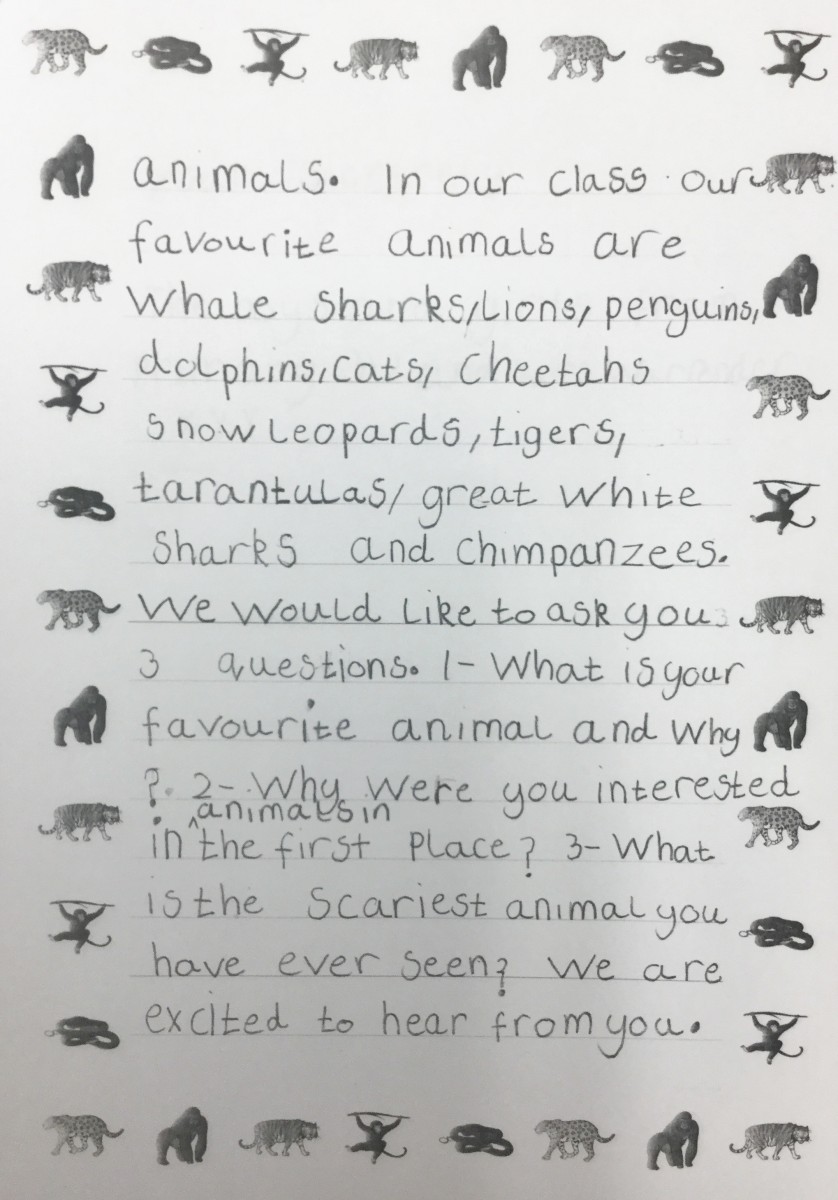 animals. In our class our
favourite animals are
Whale Sharks, Lions, penguins,
dolphins, cats, Cheetahs
snow Leopards, tigers,
tarantulas, great White
Sharks and Chimpanzees.
We Would Like to ask you
3 questions. 1- What is your
favourite animal and Why
? 2- Why were you interested
animals in
in ^ the first Place? 3- What
is the Scariest animal you
have ever seen? We are
excited to hear from you.